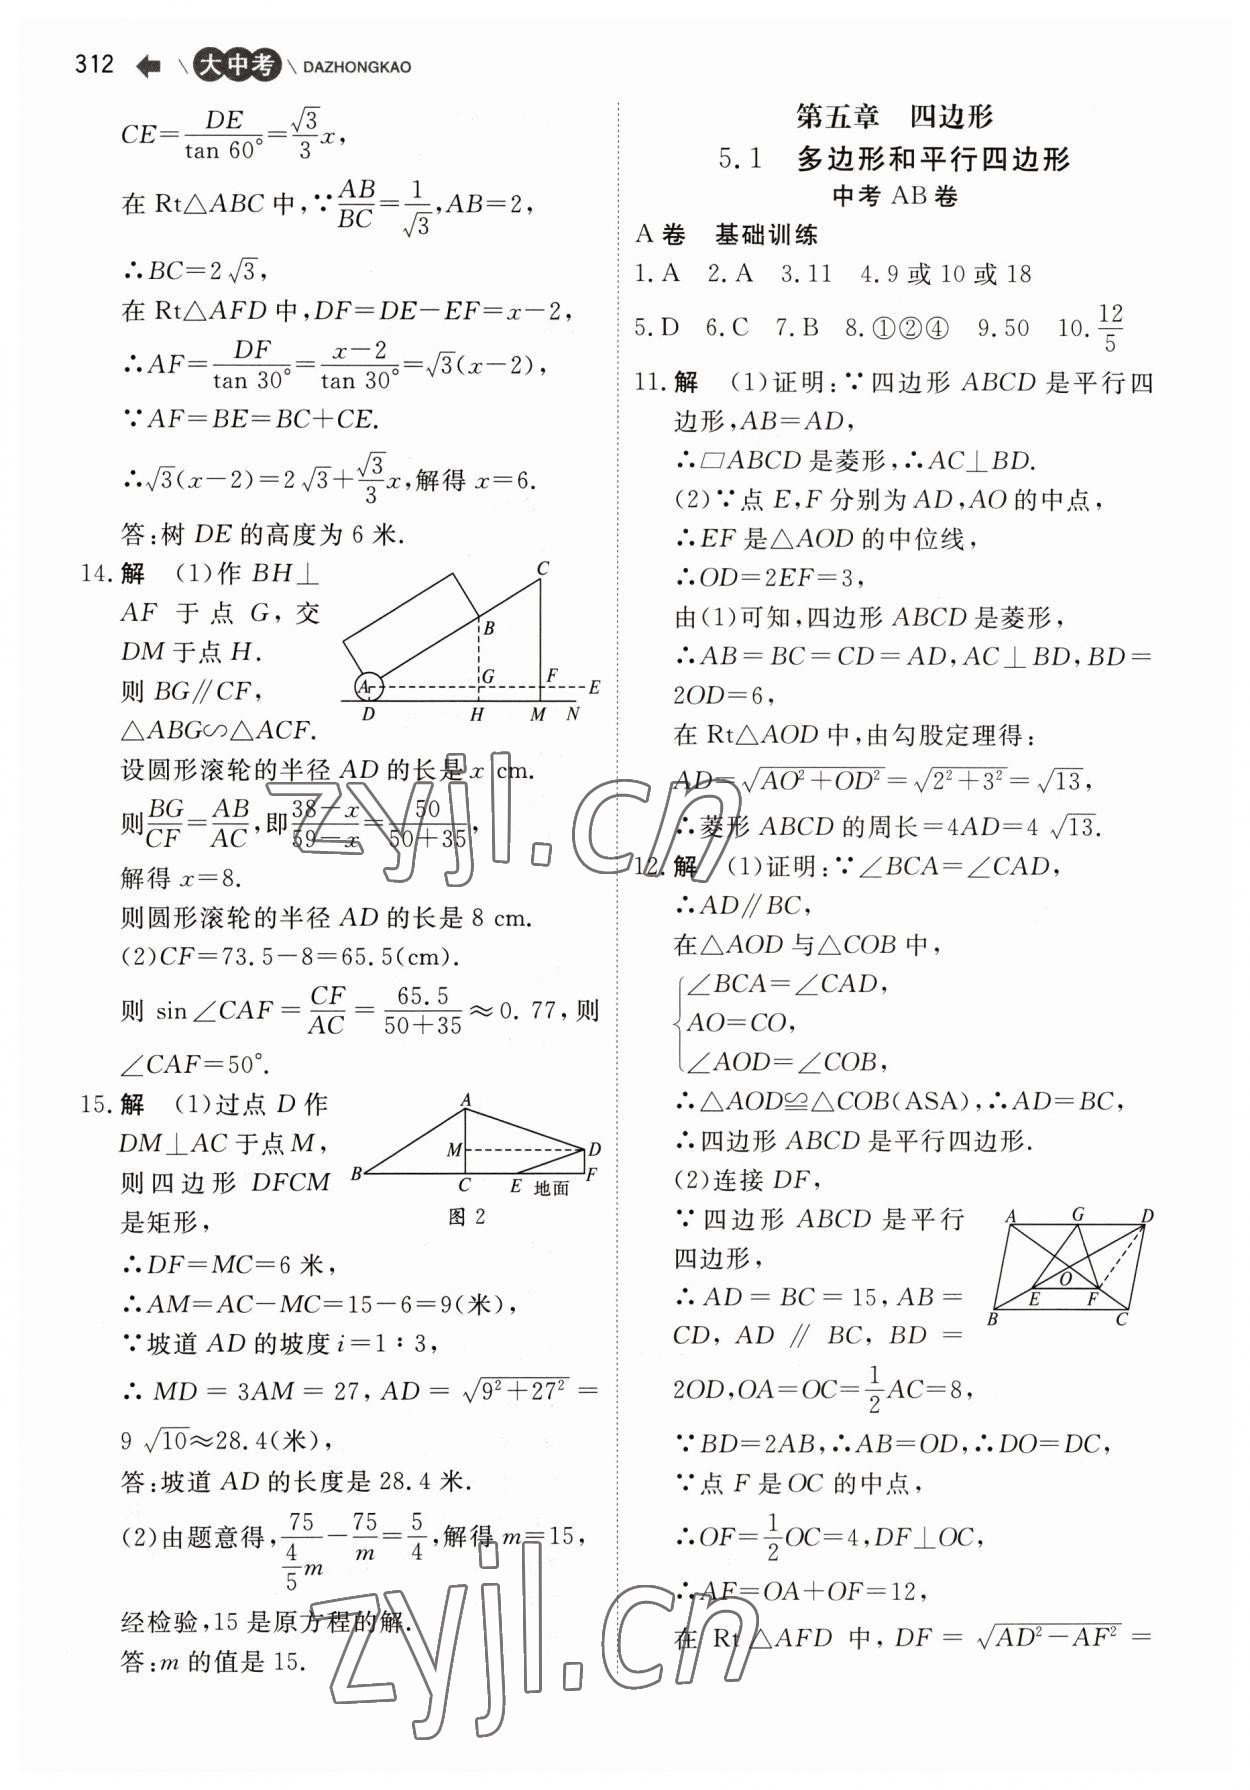 312 ← \ 大中考 \ DAZHONGKAO
CE=DE/tan 60°=√3/3 x,
在 Rt△ABC 中,∵AB/BC=1/√3,AB=2,
∴BC=2√3,
在 Rt△AFD 中,DF=DE-EF=x-2,
∴AF=DF/tan 30°=x-2/tan 30°=√3(x-2),
∵AF=BE=BC+CE.
∴√3(x-2)=2√3+√3/3 x,解得 x=6.
答:树 DE 的高度为 6 米.
14.解 (1)作 BH⊥
AF 于点 G,交
DM 于点 H.
则 BG∥CF,
△ABG∽△ACF.
C
B
A
G
F
E
D
H
M
N
设圆形滚轮的半径 AD 的长是 x cm.
则BG/CF=AB/AC,即38-x/59-x=50/50+35,
解得 x=8.
则圆形滚轮的半径 AD 的长是 8 cm.
(2)CF=73.5-8=65.5(cm).
则 sin∠CAF=CF/AC=65.5/50+35≈0.77,则
∠CAF=50°.
15.解 (1)过点 D 作
DM⊥AC 于点 M,
则四边形 DFCM
是矩形,
A
M
D
B
C
E
地面
F
图 2
∴DF=MC=6 米,
∴AM=AC-MC=15-6=9(米),
∵坡道 AD 的坡度 i=1∶3,
∴MD=3AM=27,AD=√9²+27²=
9√10≈28.4(米),
答:坡道 AD 的长度是 28.4 米.
(2)由题意得,75/(4/5 m)-75/m=5/4,解得 m=15,
经检验,15 是原方程的解.
答:m 的值是 15.
第五章 四边形
5.1 多边形和平行四边形
中考 AB 卷
A 卷 基础训练
1.A 2.A 3.11 4.9 或 10 或 18
5.D 6.C 7.B 8.①②④ 9.50 10.12/5
11.解 (1)证明:∵四边形 ABCD 是平行四
边形,AB=AD,
∴▱ABCD 是菱形,∴AC⊥BD.
(2)∵点 E,F 分别为 AD,AO 的中点,
∴EF 是△AOD 的中位线,
∴OD=2EF=3,
由(1)可知,四边形 ABCD 是菱形,
∴AB=BC=CD=AD,AC⊥BD,BD=
2OD=6,
在 Rt△AOD 中,由勾股定理得:
AD=√AO²+OD²=√2²+3²=√13,
∴菱形 ABCD 的周长=4AD=4√13.
12.解 (1)证明:∵∠BCA=∠CAD,
∴AD∥BC,
在△AOD 与△COB 中,
∠BCA=∠CAD,
AO=CO,
∠AOD=∠COB,
∴△AOD≌△COB(ASA),∴AD=BC,
∴四边形 ABCD 是平行四边形.
(2)连接 DF,
∵四边形 ABCD 是平行
四边形,
∴AD=BC=15,AB=
CD,AD∥BC,BD=
A
G
D
O
E
F
B
C
2OD,OA=OC=1/2 AC=8,
∵BD=2AB,∴AB=OD,∴DO=DC,
∵点 F 是 OC 的中点,
∴OF=1/2 OC=4,DF⊥OC,
∴AF=OA+OF=12,
在 Rt△AFD 中,DF=√AD²-AF²=
zyjl.cn
zyjl.cn